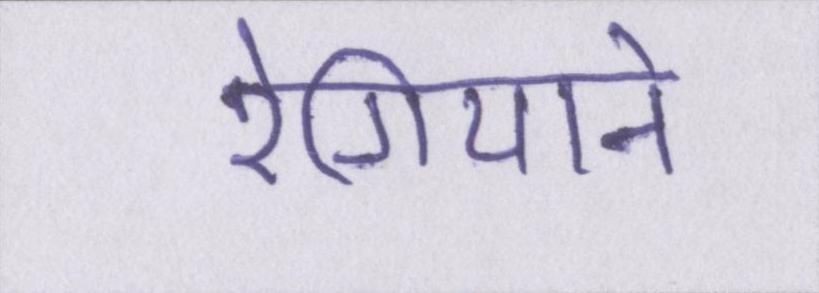 रेगियाने